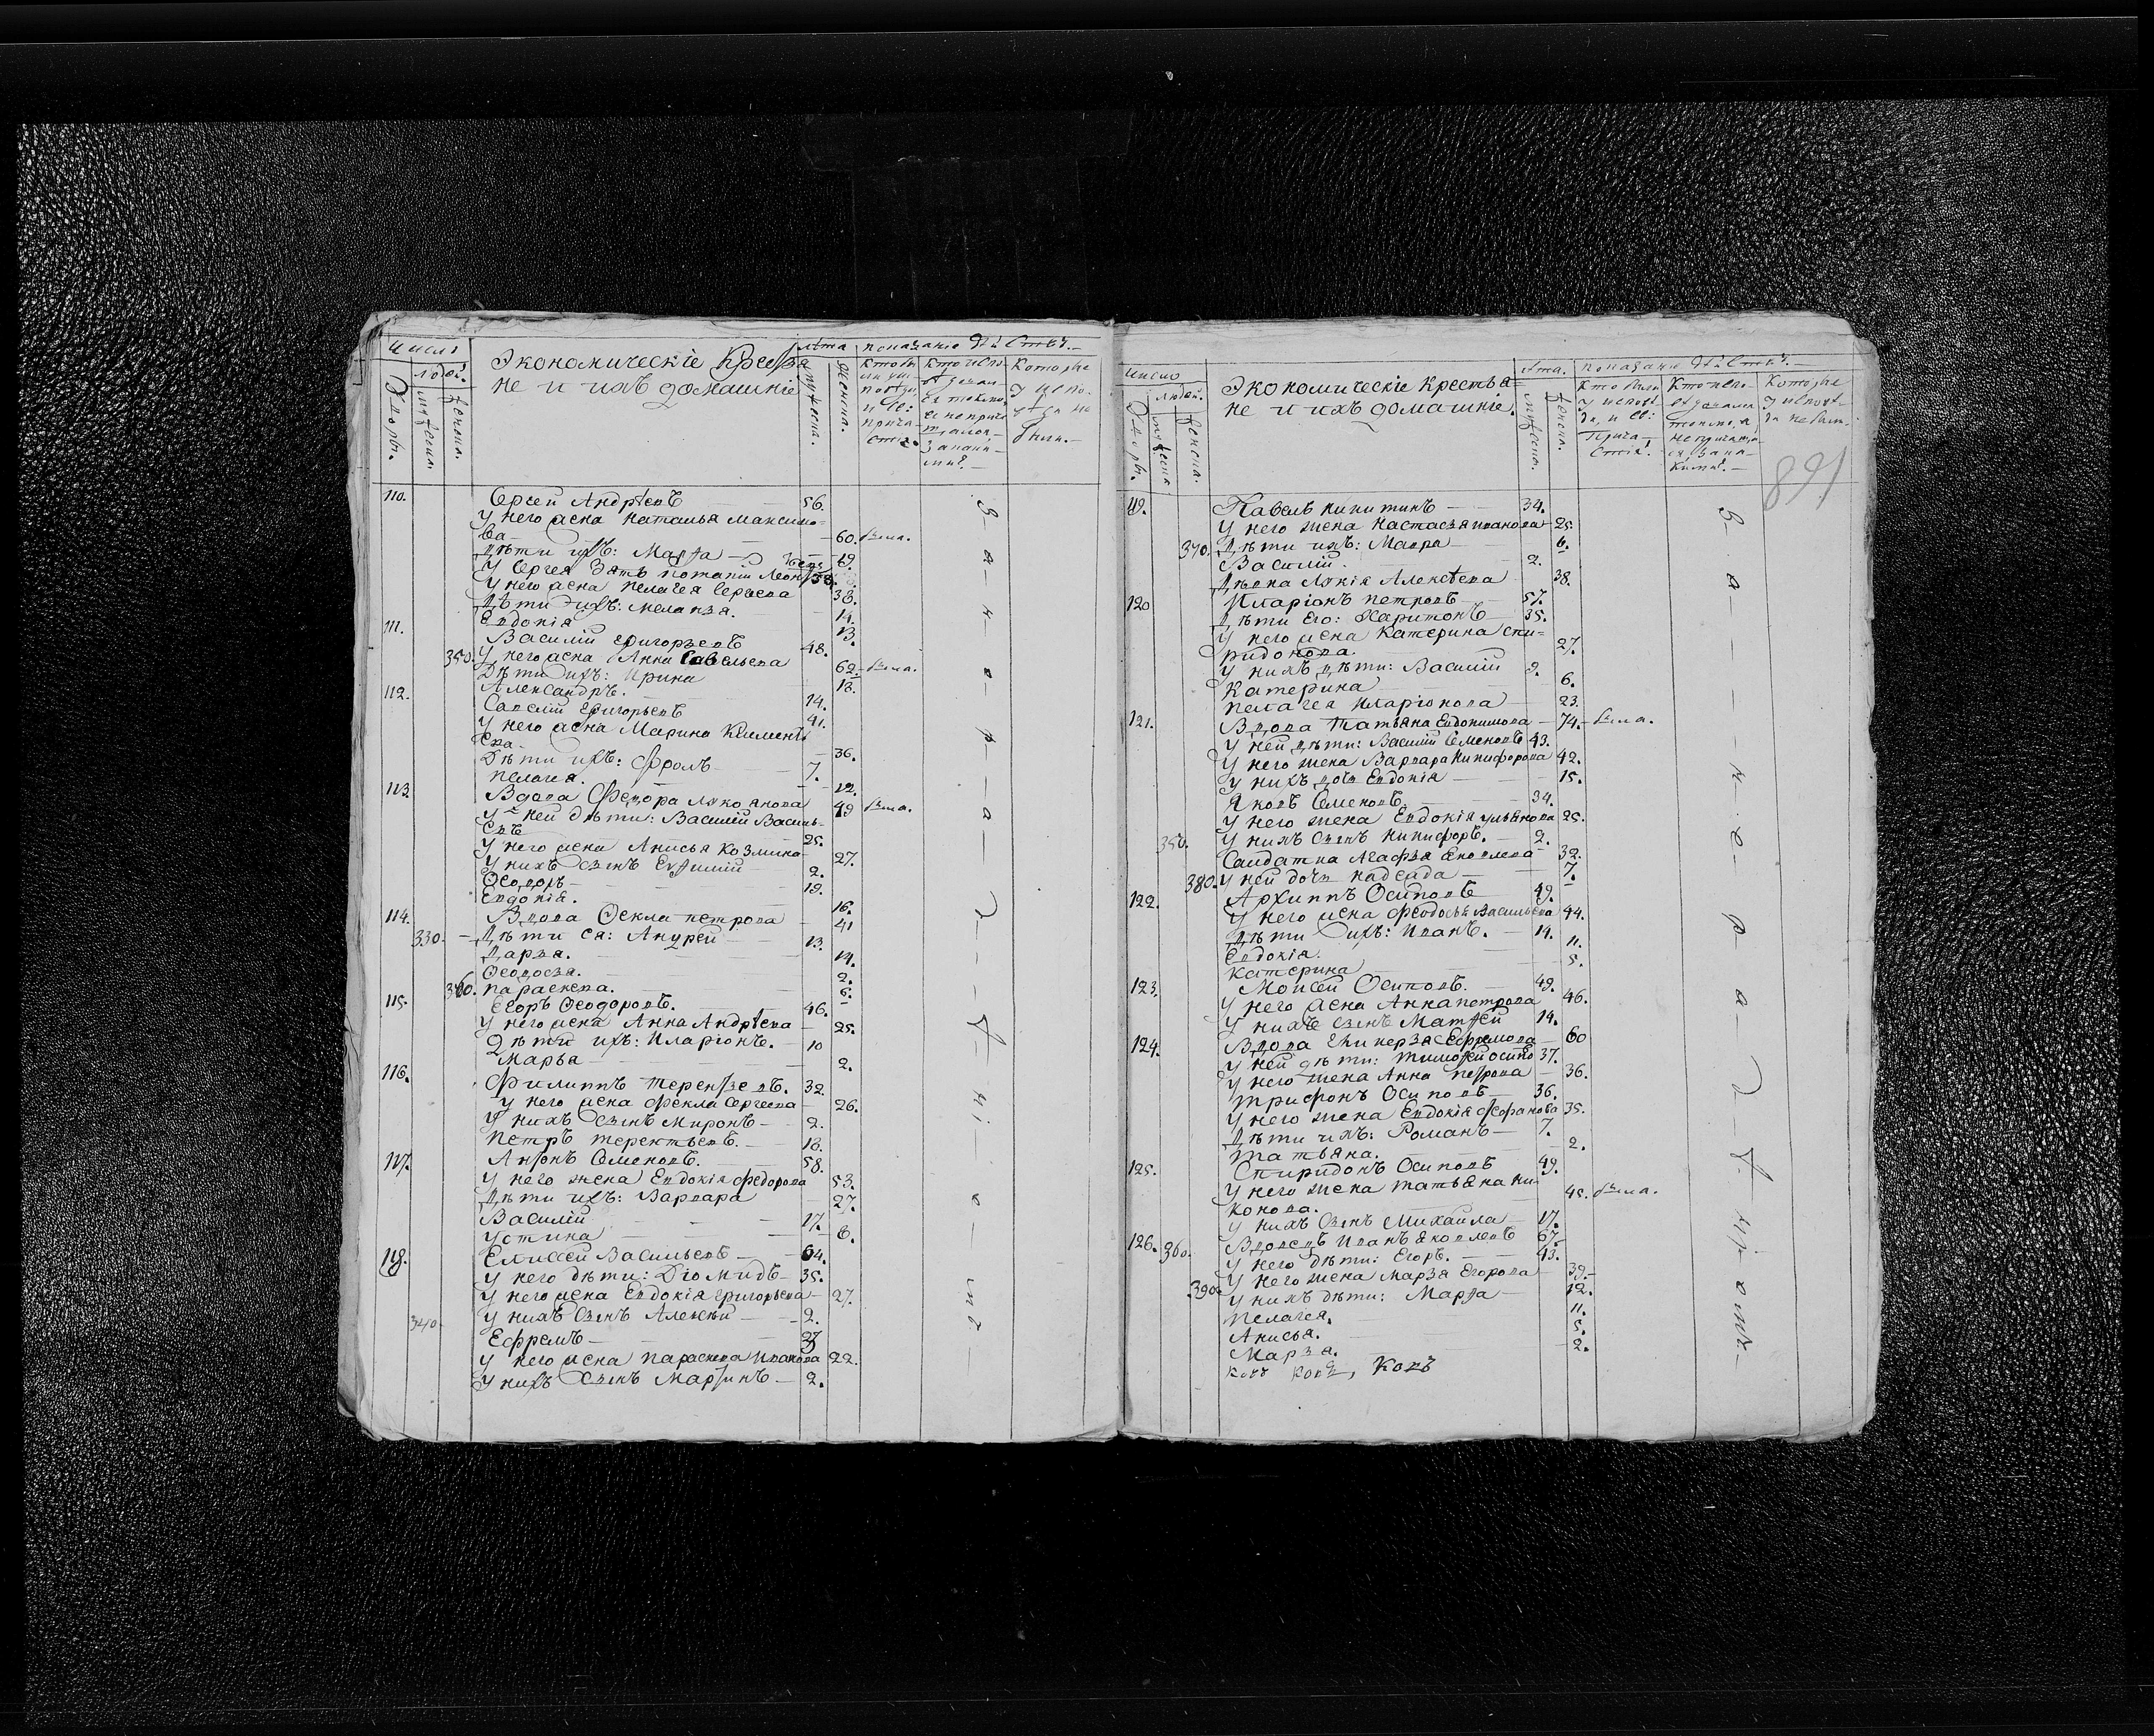 Число
Людей.
Дворы.
мужеска.
женска.
Экономическіе Крестья
не и ихъ домашніе
Лѣта
мужеска.
женска.
показаніе Дѣйств.
Которые
110. Сергей Андрѣевъ 56.
У него жена Наталья Максимо=
ва 60. была.
Дѣти ихъ: Марѳа 19.
У Сергея Зять Потапій Леонтьевъ 38.
У него жена Пелагея Сергеева 38.
Дѣти ихъ: Меланья. 14.
Евдокія 13.
111. Василій Григорьевъ 48.
350. У него жена Анна Савельева 62. была.
Дѣти ихъ: Ирина 18.
Александръ. 14.
112. Савелій Григорьевъ 41.
У него жена Марина Климентье
ева. 36.
Дѣти ихъ: Фролъ 7.
Пелагея. 12.
113. Вдова Федора Лукьянова 49 была.
У ней дѣти: Василій Василь-
евъ 25.
У него жена Анисья Козмина 27.
У нихъ сынъ Евфимій 2.
Ѳеодоръ 19.
Евдокія. 16.
114. Вдова Ѳекла Петрова 41
330. Дѣти ея: Андрей 13.
Дарья. 14.
Ѳеодосья. 2.
360. Параскева. 6.
115. Егоръ Ѳеодоровъ. 46.
У него жена Анна Андрѣева 25.
Дѣти ихъ: Иларіонъ. 10
Марья 2.
116. Филиппъ Терентьевъ. 32.
У него жена Фекла Сергеева 26.
У нихъ сынъ Миронъ 2.
Петръ Терентьевъ. 18.
117. Антонъ Семеновъ. 58.
У него жена Евдокія Федорова 53.
Дѣти ихъ: Варвара 27.
Василій 17.
Устина 6.
118. Елисей Васильевъ 64.
У него дѣти: Діомидъ 35.
У него жена Евдокія Григорьева 27.
340 У нихъ сынъ Алексѣй 2.
Ефремъ
У него жена Параскева Иванова 22.
У нихъ сынъ Мартинъ 2.
Число
Людей.
Дворы.
мужеска
женска.
Экономическіе Крестья=
не и ихъ домашніе.
Лѣта.
мужеска.
женска.
показаніе Дѣйств.
Кто были
у исповѣ-
ди, и св:
Прича-
стія.
Которые
у исповѣ-
ди не были.
891
119. Павелъ Никитинъ 34.
У него жена Настасья Иванова 25.
370. Дѣти ихъ: Мавра 6.
Василій. 2.
Дѣвка Лукія Алексѣева 38.
120 Иларіонъ Петровъ 57.
Дѣти Его: Харитонъ 35.
У него жена Катерина Спи=
ридонова. 27.
У нихъ дѣти: Василій 9.
Катерина 6.
Пелагея Иларіонова 23.
121. Вдова Татьяна Евдокимова 74. была.
У ней дѣти: Василій Семеновъ 43.
У него жена Варвара Никифорова 42.
У нихъ дочь Евдокія 15.
Яковъ Семеновъ. 34.
У него жена Евдокія Ульянова 25.
350. У нихъ сынъ Никифоръ. 2.
Салдатка Агафья Яковлева 32.
380. У ней дочь Надежда 7.
122. Архиппъ Осиповъ 49.
У него жена Феодосья Васильева 44.
Дѣти ихъ: Иванъ. 14.
Евдокія. 11.
Катерина 5.
123. Моисей Осиповъ. 49.
У него жена Анна Петрова 46.
У нихъ сынъ Матфей 14.
124. Вдова Гликерья Ефремова 60
У ней дѣти: Тимофей Осипо 37.
У него жена Анна Петрова 36.
Трифонъ Осиповъ 36.
У него жена Евдокія Феофанова 35.
Дѣти ихъ: Романъ 7.
Татьяна. 2.
125. Спиридонъ Осиповъ 49.
У него жена Татьяна Ни-
конова. 45. была.
У нихъ сынъ Михайла 17.
126. 360. Вдовецъ Иванъ Яковлевъ 67.
У него дѣти: Егоръ. 43.
У него жена Марья Егорова 39.
390. У нихъ дѣти: Марѳа 12.
Пелагея. 11.
Анисья. 5.
Марья. 2.